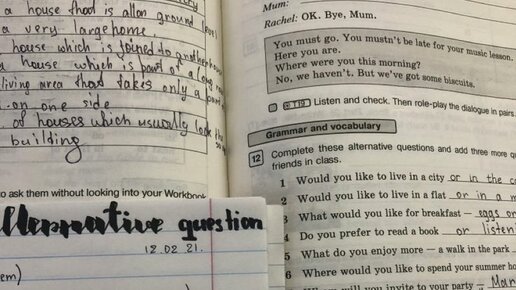 a house that is all on ground level
a very large home.
house which is joined to another house
a house which is part of a long
living area that takes only a part
on one side
of houses which usually look the
building
to ask them without looking into your Workbook
alternative question
12.02 21.
em)
Mum:
Rachel: OK. Bye, Mum.
You must go. You mustn't be late for your music lesson.
Here you are.
Where were you this morning?
No, we haven't. But we've got some biscuits.
T19 Listen and check. Then role-play the dialogue in pairs.
Grammar and vocabulary
12 Complete these alternative questions and add three more q
friends in class.
1 Would you like to live in a city or in the co
2 Would you like to live in a flat or in a m
3 What would you like for breakfast — eggs or
4 Do you prefer to read a book or listen
5 What do you enjoy more — a walk in the park
6 Where would you like to spend your summer ho
will you invite to your party — Mar